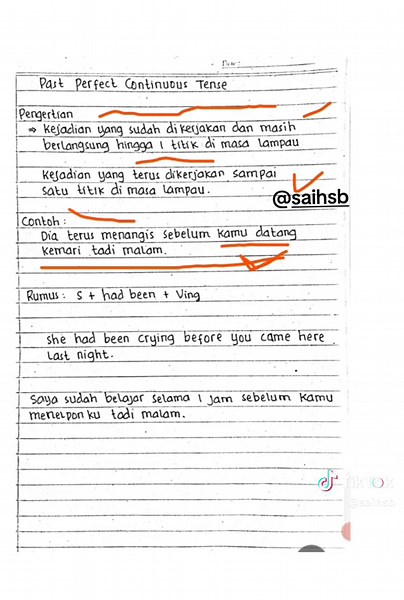 Past Perfect Continuous Tense
Pengertian
⇒ Kejadian yang sudah dikerjakan dan masih
berlangsung hingga 1 titik di masa lampau
Kejadian yang terus dikerjakan sampai
satu titik di masa lampau.
@saihsb
Contoh :
Dia terus menangis sebelum kamu datang
kemari tadi malam.
Rumus : S + had been + Ving
she had been crying before you came here
Last night.
Saya sudah belajar selama 1 jam sebelum kamu
menelpon ku tadi malam.
TikTok
@saihsb